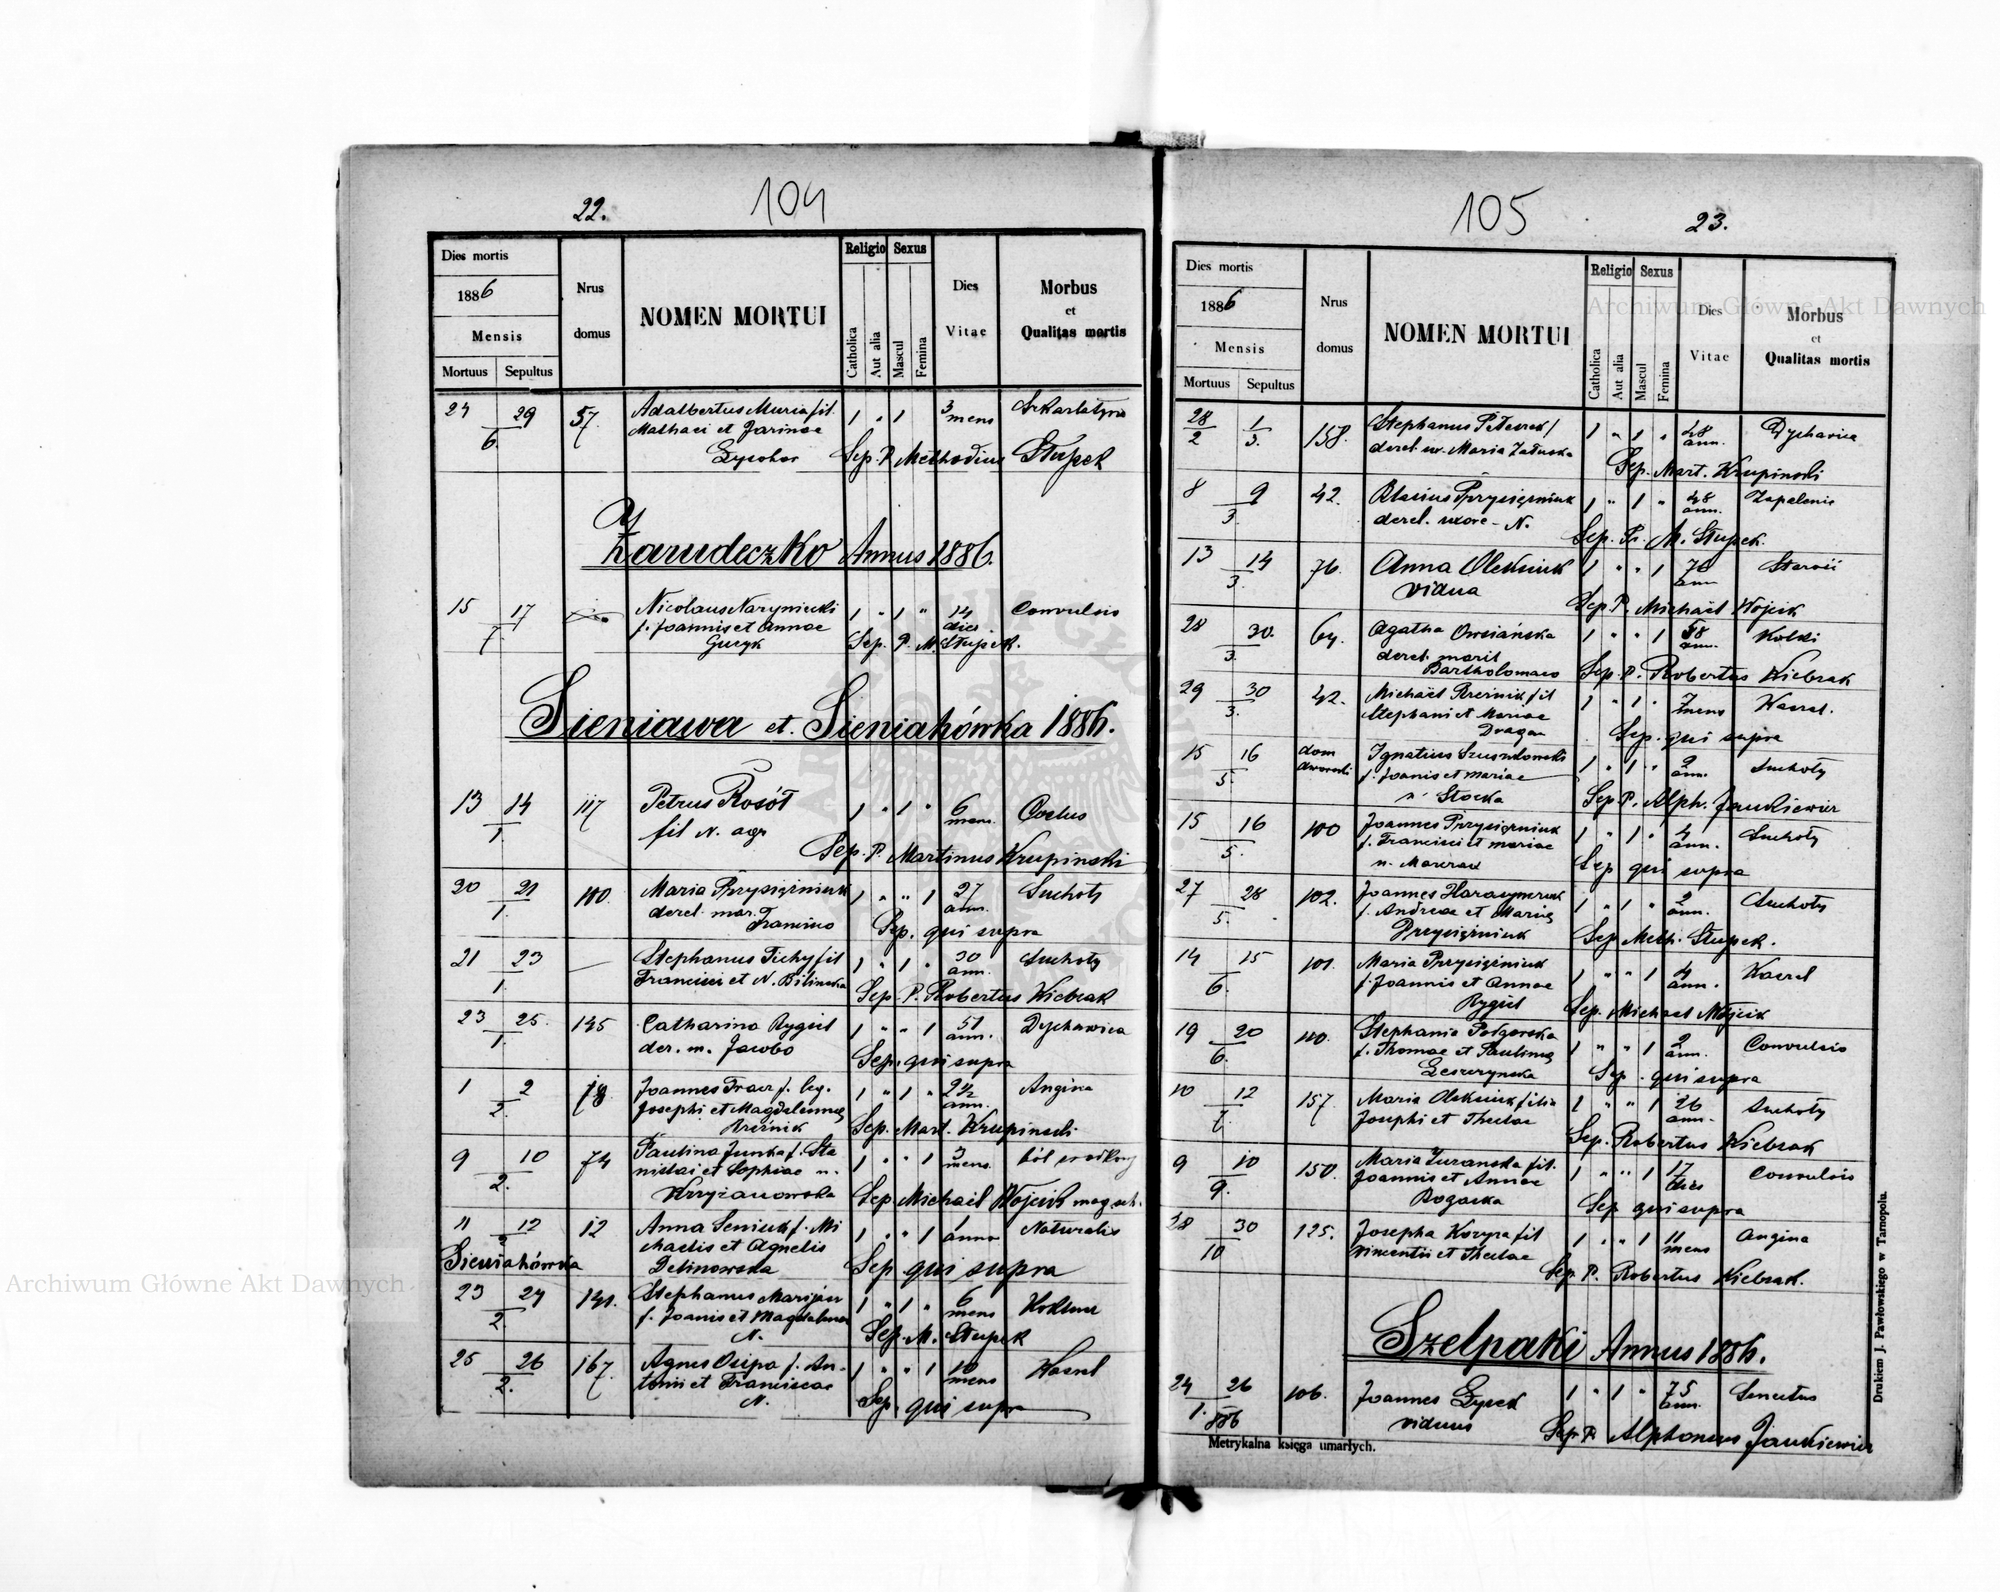 22. 104
Dies mortis
1886
Mensis
Mortuus Sepultus
Nrus domus
NOMEN MORTUI
Religio Sexus
Catholica Aut alia Mascul Femina
Dies Vitae
Morbus et Qualitas mortis
24 29 57 Adalbertus Muria fil. 1 " 1 3 mens Szkarlatyna
6. Mathaei et Jarinae
Łysohor Sep. P. Methodius Słupek
Zarudeczko Annus 1886.
15 17 Nicolaus Naryniecki 1 " 1 " 14 dies Convulsio
7 f. Joannis et Annae
Guzyk Sep. P. M. Słupek.
Sieniawa et Sieniahówka 1886.
13 14 117 Petrus Rosół 1 " 1 " 6 mens.
1. fil N. agr
Sep. P. Martinus Krupinski
20 21 100. Maria Przysiężniuk 1 " " 1 27 ann. Suchoty
1. derel. mar.
Sep. qui supra
21 23 — Stephanus Tichy fil 1 " 1 " 30 ann. Suchoty
1. Francisci et N. Bilinska
Sep. P. Robertus Kiebzak
23 25. 145 Catharina Rygiel 1 " " 1 51 ann. Dychawica
1. der. m. Jacobo
Sep. qui supra
1 2 78 Joannes f. leg. 1 " 1 " 2½ ann. Angina
2. Josephi et Magdalennae
Sep. Mart. Krupinski.
9 10 74 Paulina f. Sta 1 " " 1 3 mens.
2. nislai et Sophiae n.
Krzyżanowska Sep. Michael Wojcik
11 12 12 Anna Seniuk f. Mi 1 " " 1 1 anno Naturalis
2 chaelis et Agnetis
Sieniahówka Sep qui supra
23 24 141. Stephanus 1 " 1 " 6 mens Koklusz
2. f. Joanis et Magdalena
N. Sep. M. Słupek
25 26 167. Agnes Osipa f. An- 1 " " 1 10 mens Kaszel
2. tonii et Franciscae
N. Sep. qui supra
105 23.
Dies mortis
1886
Mensis
Mortuus Sepultus
Nrus domus
NOMEN MORTUI
Religio Sexus
Catholica Aut alia Mascul Femina
Dies Vitae
Morbus et Qualitas mortis
28 1 158. Stephanus 1 " 1 " 48 ann. Dychawica
2 3. derel. ux. Maria Załuska
Sep. Mart. Krupinski
8 9 42. Blasius Przysiężniuk 1 " 1 " 48 ann. Zapalenie
3. derel. uxore - N.
Sep. Pr. M. Słupek.
13 14 76. Anna Oleksiuk 1 " " 1 76 ann
3. vidua
Sep. P. Michael Wojcik
28 30. Agatha Owsiańska 1 " " 1 58 ann. Kolki
3. derel. marit
Bartholomaeo Sep. P. Robertus Kiebzak
29 30 42. Michael fil 1 " 1 " 7 mens Kaszel.
3. Stephani et Mariae
Dragan Sep. qui supra
15 16 dom dworski Ignatius 1 " 1 " 2 ann. Suchoty
5. f. Joanis et Mariae
n. Stocka Sep P. Alph. Jankiewicz
15 16 100 Joannes Przysiężniuk 1 " 1 " 4 ann. Suchoty
5. f. Francisci et Mariae
n. Sep qui supra
27 28 102. Joannes 1 " 1 " 2 ann. Suchoty
5. f. Andreae et Mariae
Przysiężniuk Sep Meth. Słupek.
14 15 101. Maria Przysiężniuk 1 " " 1 4 ann. Kaszel
6. f. Joannis et Annae
Rygiel Sep. Michael Wojcik
19 20 110. Stephania Podgorska 1 " " 1 2 ann. Convulsio
6. f. Thomae et Paulinae
Leszczynska Sep. qui supra
10 12 157. Maria Oleksiuk filia 1 " " 1 26 ann. Suchoty
7. Josephi et Theclae
Sep. Robertus Kiebzak
9 10 150. Maria Zuranska fil. 1 " " 1 17 dies Convulsio
9. Joannis et Annae
Sep qui supra
28 30 125. Josepha Kozyra fil 1 " " 1 11 mens Angina
10 Vincentii et Theclae
Sep. P. Robertus Kiebzak.
Szelpaki Annus 1886.
24 26 106. Joannes Łysek 1 " 1 " 75 ann. Senectus
1. 886 viduus
Sep. P. Alphonsus Jankiewicz
Metrykalna księga umarłych.
Drukiem J. Pawłowskiego w Tarnopolu.
Archiwum Główne Akt Dawnych
Archiwum Główne Akt Dawnych